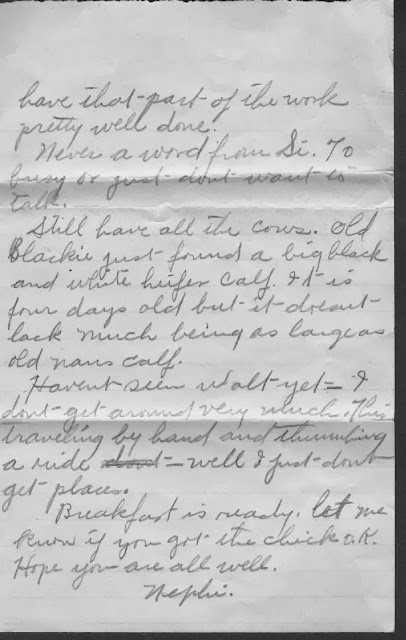 have that part of the work
pretty well done.
Never a word from Si. To
busy or just dont want to
talk.
Still have all the cows. Old
Blackie just found a big black
and white heifer calf. It is
four days old but it doesnt
lack much being as large as
old nans calf.
Havent seen Walt yet - I
dont get around very much. This
traveling by hand and thumbing
a ride dont - well I just dont
get places.
Breakfast is ready. let me
know if you got the check O.K.
Hope you are all well.
Nephi.